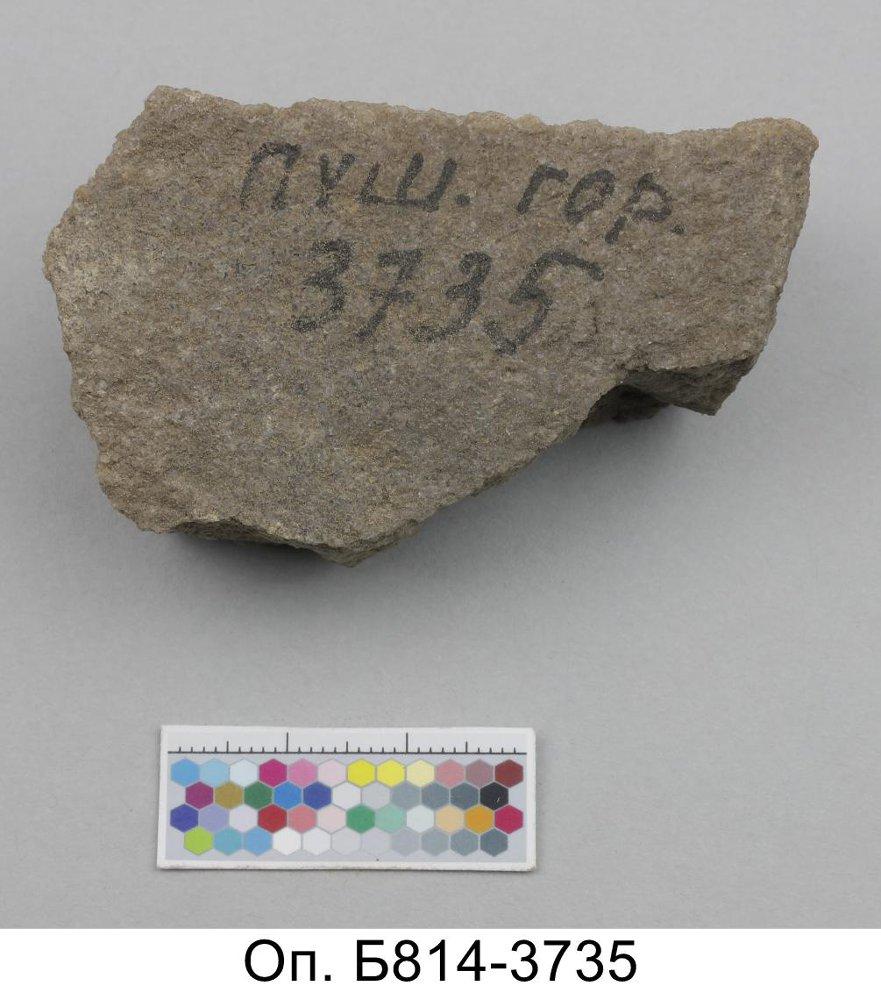 пуш. гор.
3735
Оп. Б814-3735